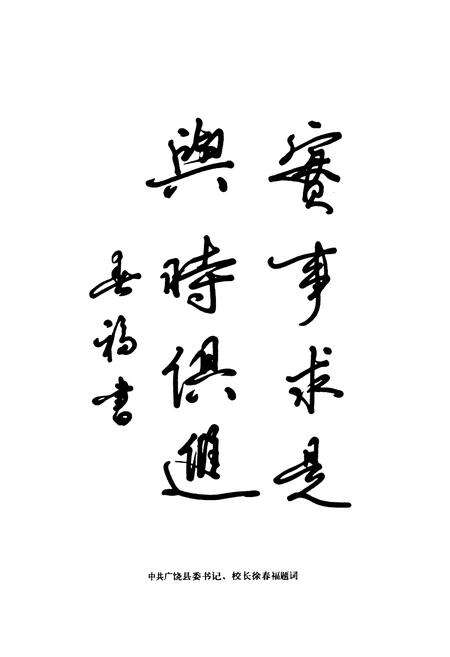 實事求是
與時俱進
春福書
中共广饶县委书记、校长徐春福题词